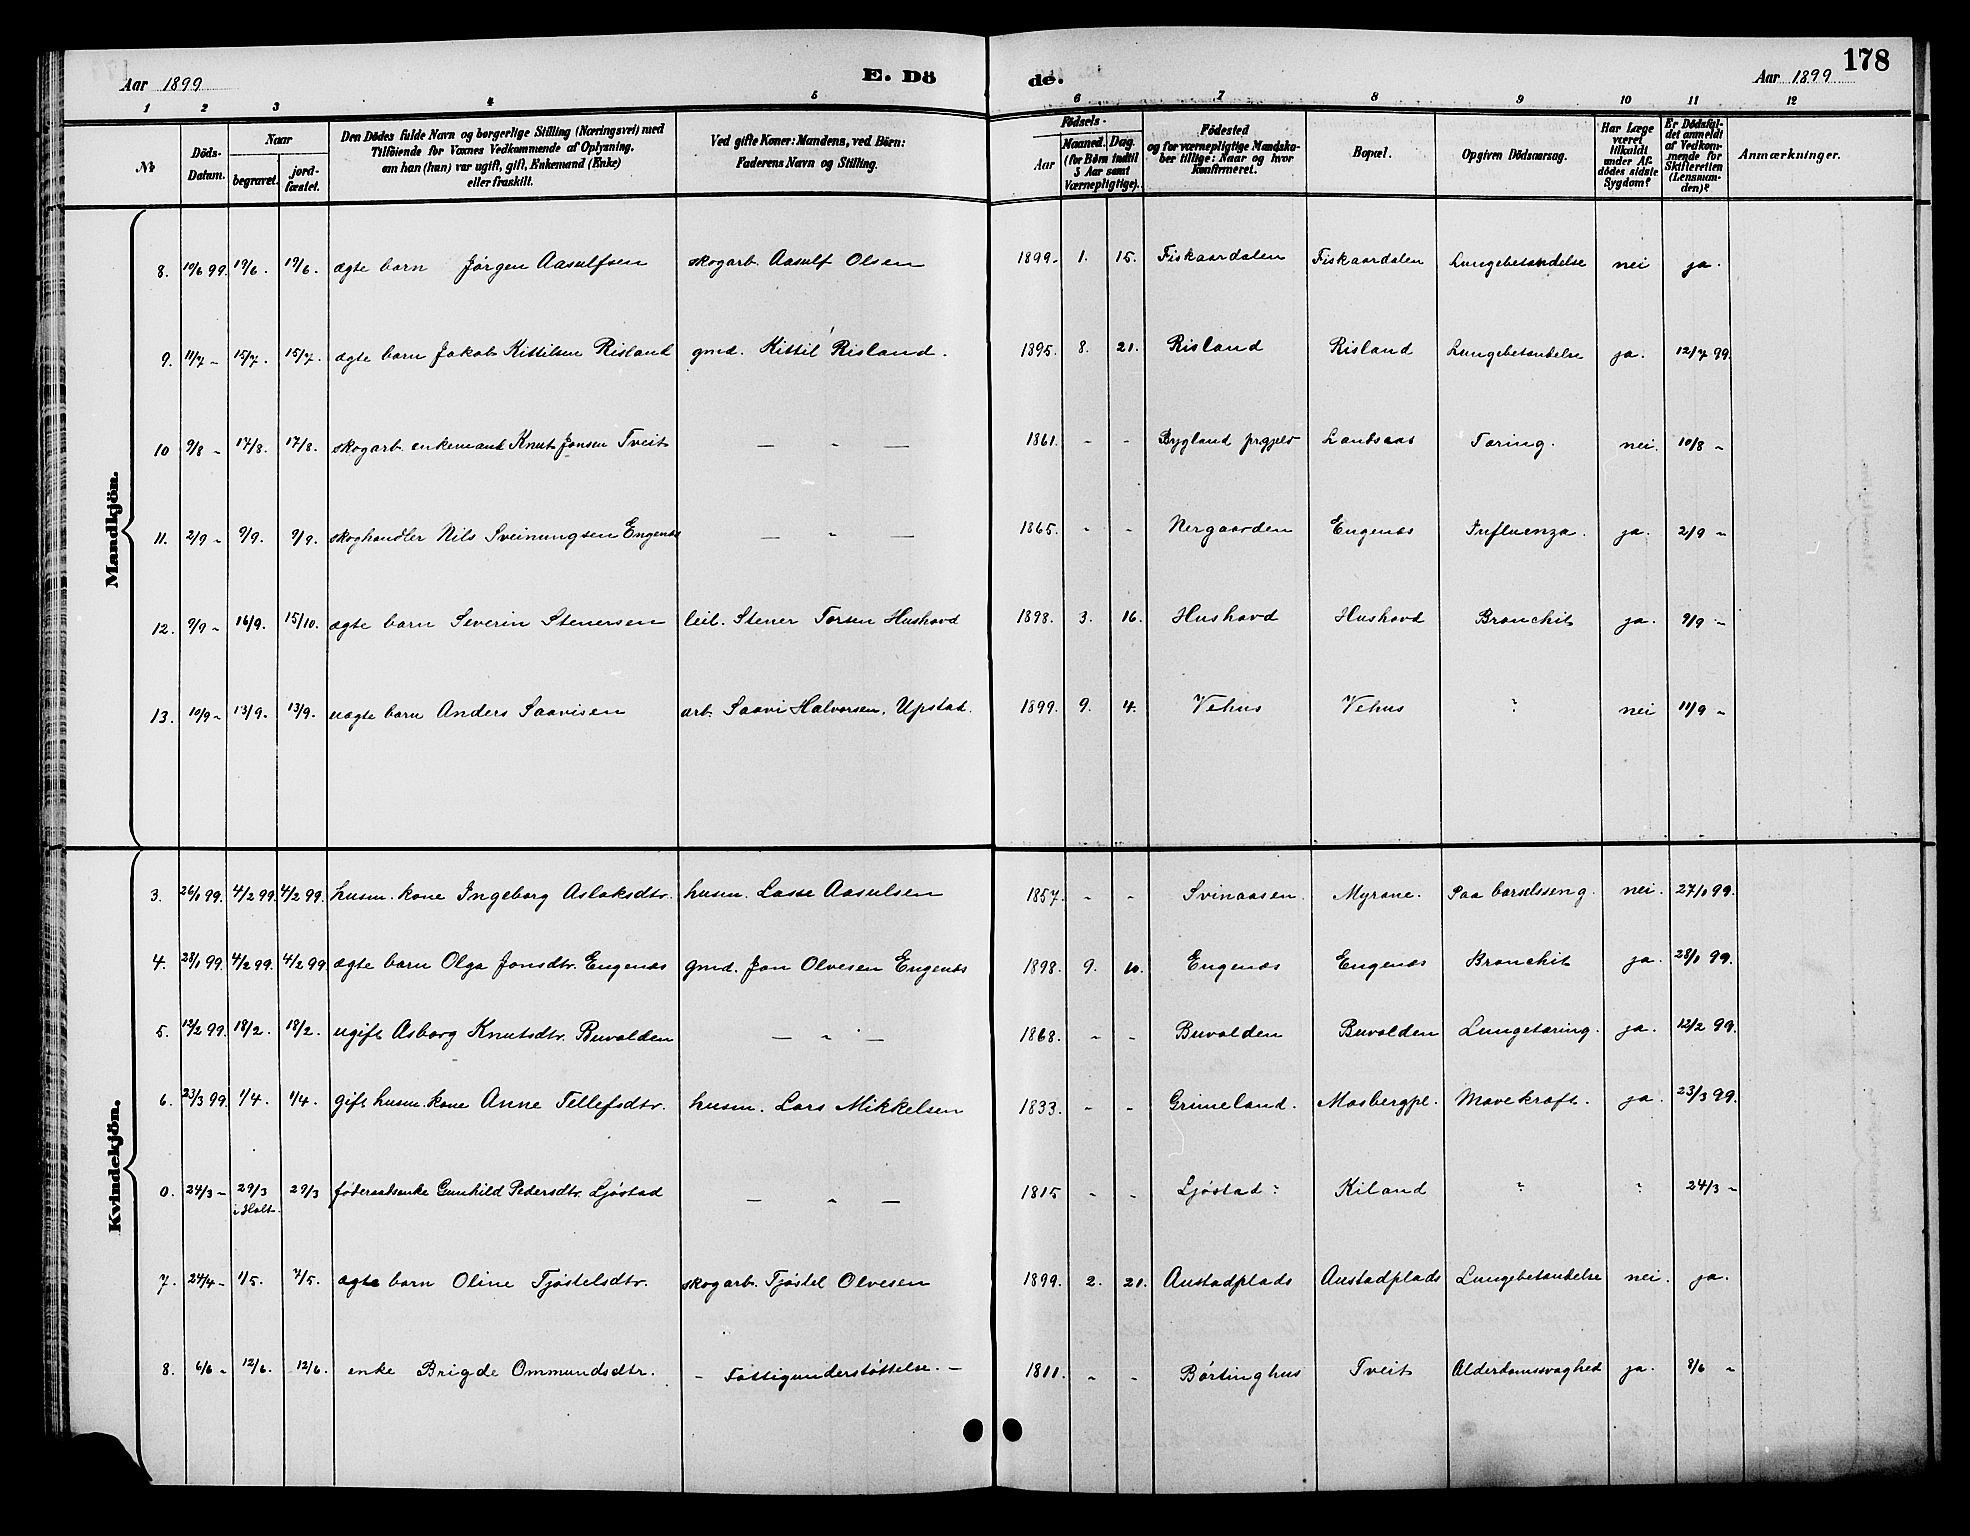 178
Aar 1899 E. Dö de. Aar 1899
1 2 3 4 5 6 7 8 9 10 11 12
№ Döds-Datum. Naar begravet. jord-fæstet. Den Dödes fulde Navn og borgerlige Stilling (Næringsvei) med Tilföiende for Voxnes Vedkommende af Oplysning, om han (hun) var ugift, gift, Enkemand (Enke) eller fraskilt. Ved gifte Koner: Mandens, ved Börn: Faderens Navn og Stilling. Födsels- Aar Maaned. Dag. (for Börn indtil 5 Aar samt Værnepligtige). Födested og for værnepligtige Mandskaber tillige: Naar og hvor konfirmeret. Bopæl. Opgiven Dödsaarsag. Har Læge været tilkaldt under Afdödes sidste Sygdom? Er Dödsfaldet anmeldt af Vedkommende for Skifteretten (Lensmanden)? Anmærkninger.
Mandkjön.
8. 19/6 99. 19/6. 19/6. ægte barn Jørgen Aasulfsen skogarb. Aasulf Olsen 1899. 1. 15. Fiskaardalen Fiskaardalen Lungebetændelse nei ja.
9. 11/7 - 15/7. 15/7. ægte barn Jakob Kittilsen Risland gmd. Kittil Risland. 1895. 8. 21. Risland Risland Lungebetændelse ja. 12/7 99.
10 9/8 - 17/8. 17/8. skogarb. enkemand Knut Jonsen Tveit — " — 1861. - - Bygland prgjeld Landsaas Tæring. nei. 10/8 -
11. 2/9 - 9/9. 9/9. skoghandler Nils Sveinungsen Engenæs — " — 1865. - - Nergaarden Engenæs Influenza. ja. 2/9 -
12. 9/9 - 16/9. 15/10. ægte barn Severin Stenersen leil. Stener Torsen Hushovd 1898. 3. 16. Hushovd Hushovd Bronchit ja. 9/9 -
13. 10/9 - 13/9. 13/9. uægte barn Anders Saavisen arb. Saavi Halvorsen, Upstad. 1899. 9. 4. Vehus Vehus ? nei 11/9 -
Kvindekjön.
3. 26/1 99. 4/2 99. 4/2 99. husm. kone Ingeborg Aslaksdtr. husm. Lasse Aasulsen 1857. - - Svinaasen. Myrane. Paa barselsseng. nei. 27/1 99.
4. 28/1 99. 4/2 99. 4/2 99. ægte barn Olga Jonsdtr. Engenæs gmd. Jon Olvesen Engenæs 1898. 9. 10. Engenæs Engenæs Bronchit ja. 28/1 99.
5. 12/2 99. 18/2. 18/2. ugift Asborg Knutsdtr. Buvolden — " — 1868. - - Buvolden Buvolden Lungetæring. ja. 12/2 99.
6. 23/3 99. 1/4. 1/4. gift husm. kone Anne Tellefsdtr. husm. Lars Mikkelsen 1833. - - Grimeland. Mosbergpl. Mavekræft. ja. 23/3 99.
0. 24/3 - 29/3 i Holt. 29/3 føderaadsenke Gunhild Pedersdtr. Ljøstad — " — 1815 - - Ljøstad ? Kiland ? ? 24/3 -
7. 24/4 - 1/5. 7/5. ægte barn Oline Tjøstelsdtr. skogarb. Tjøstel Olvesen 1899. 2. 21. Austadplads Austadplads Lungebetændelse nei. ja.
8. 6/6 - 12/6. 12/6. enke Brigde Ommundsdtr. - Fattigunderstøttelse. - 1811. - - Børtinghus Tveit Alderdomssvaghed ja. 8/6 -